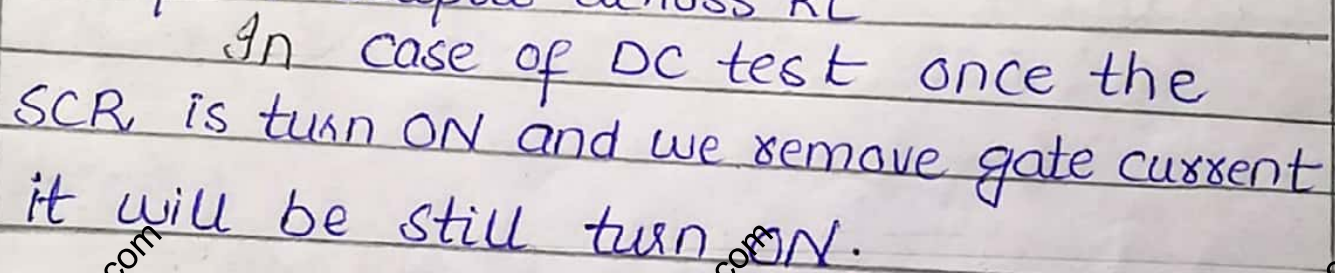 across RL
In case of DC test once the
SCR is turn ON and we remove gate current
it will be still turn ON.
.com
.com